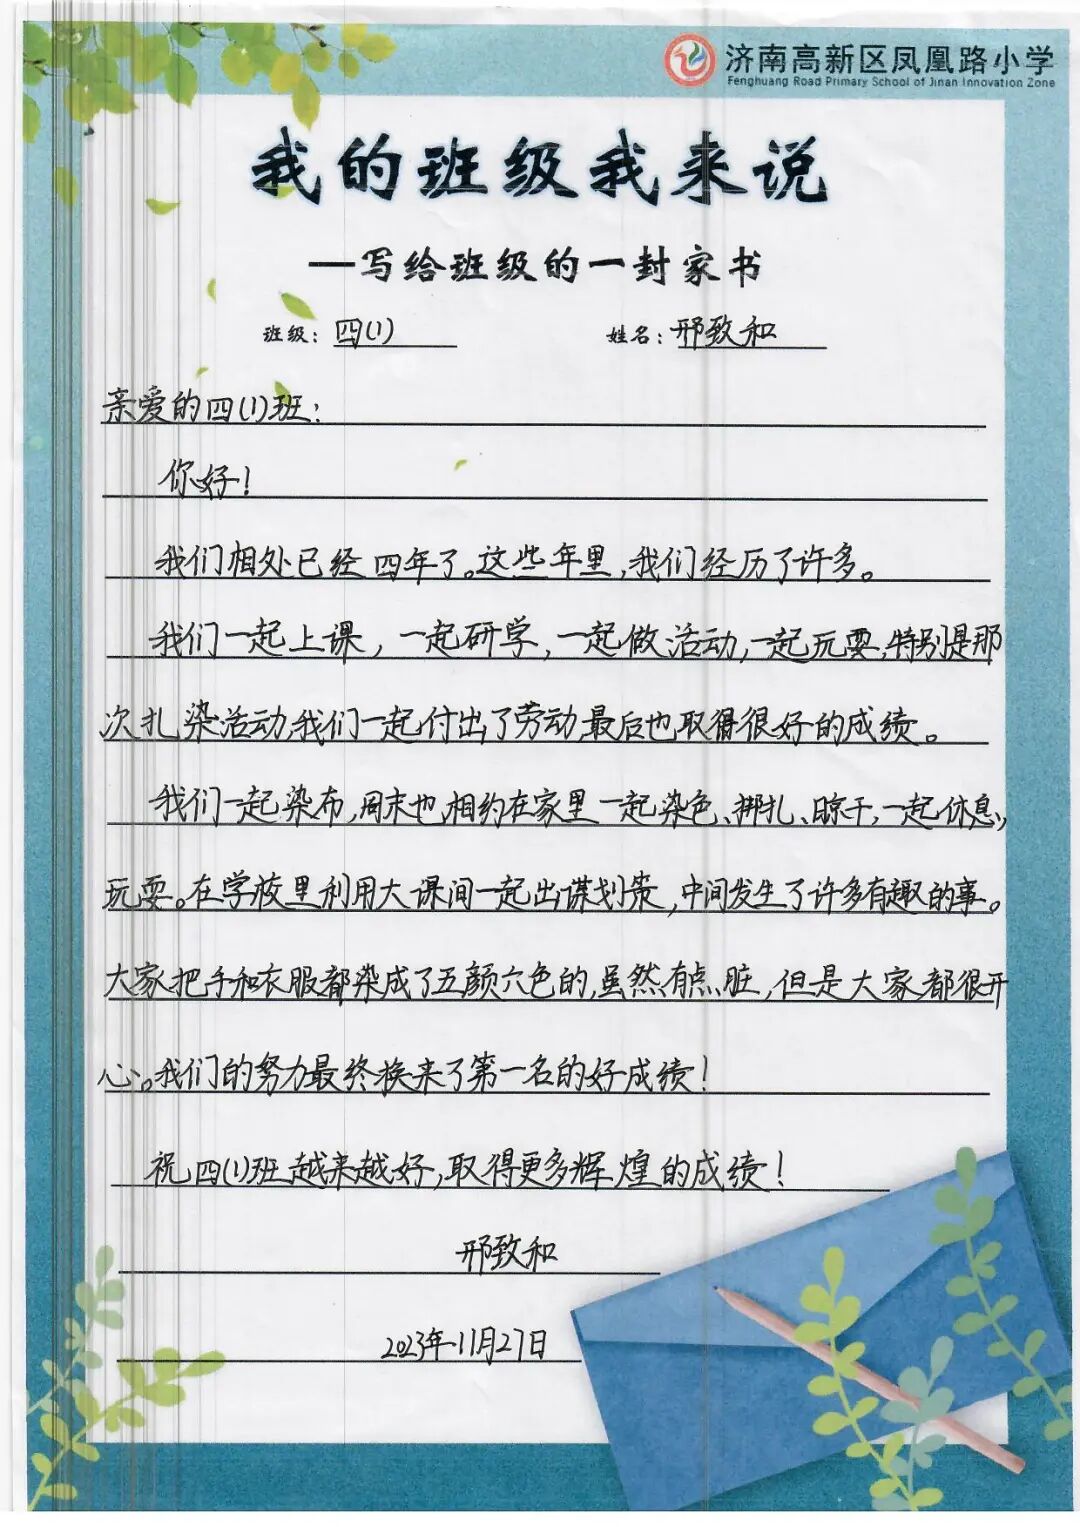 济南高新区凤凰路小学
Fenghuang Road Primary School of Jinan Innovation Zone
我的班级我来说
—写给班级的一封家书
班级：四(1) 姓名：邢致和
亲爱的四(1)班：
你好！
我们相处已经四年了。这些年里，我们经历了许多。
我们一起上课，一起研学，一起做活动，一起玩耍，特别是那
次扎染活动，我们一起付出了劳动，最后也取得很好的成绩。
我们一起染布，周末也相约在家里一起染色、绑扎、晾干，一起休息、
玩耍。在学校里利用大课间一起出谋划策，中间发生了许多有趣的事。
大家把手和衣服都染成了五颜六色的，虽然有点脏，但是大家都很开
心。我们的努力最终换来了第一名的好成绩！
祝四(1)班越来越好，取得更多辉煌的成绩！
邢致和
2023年11月27日